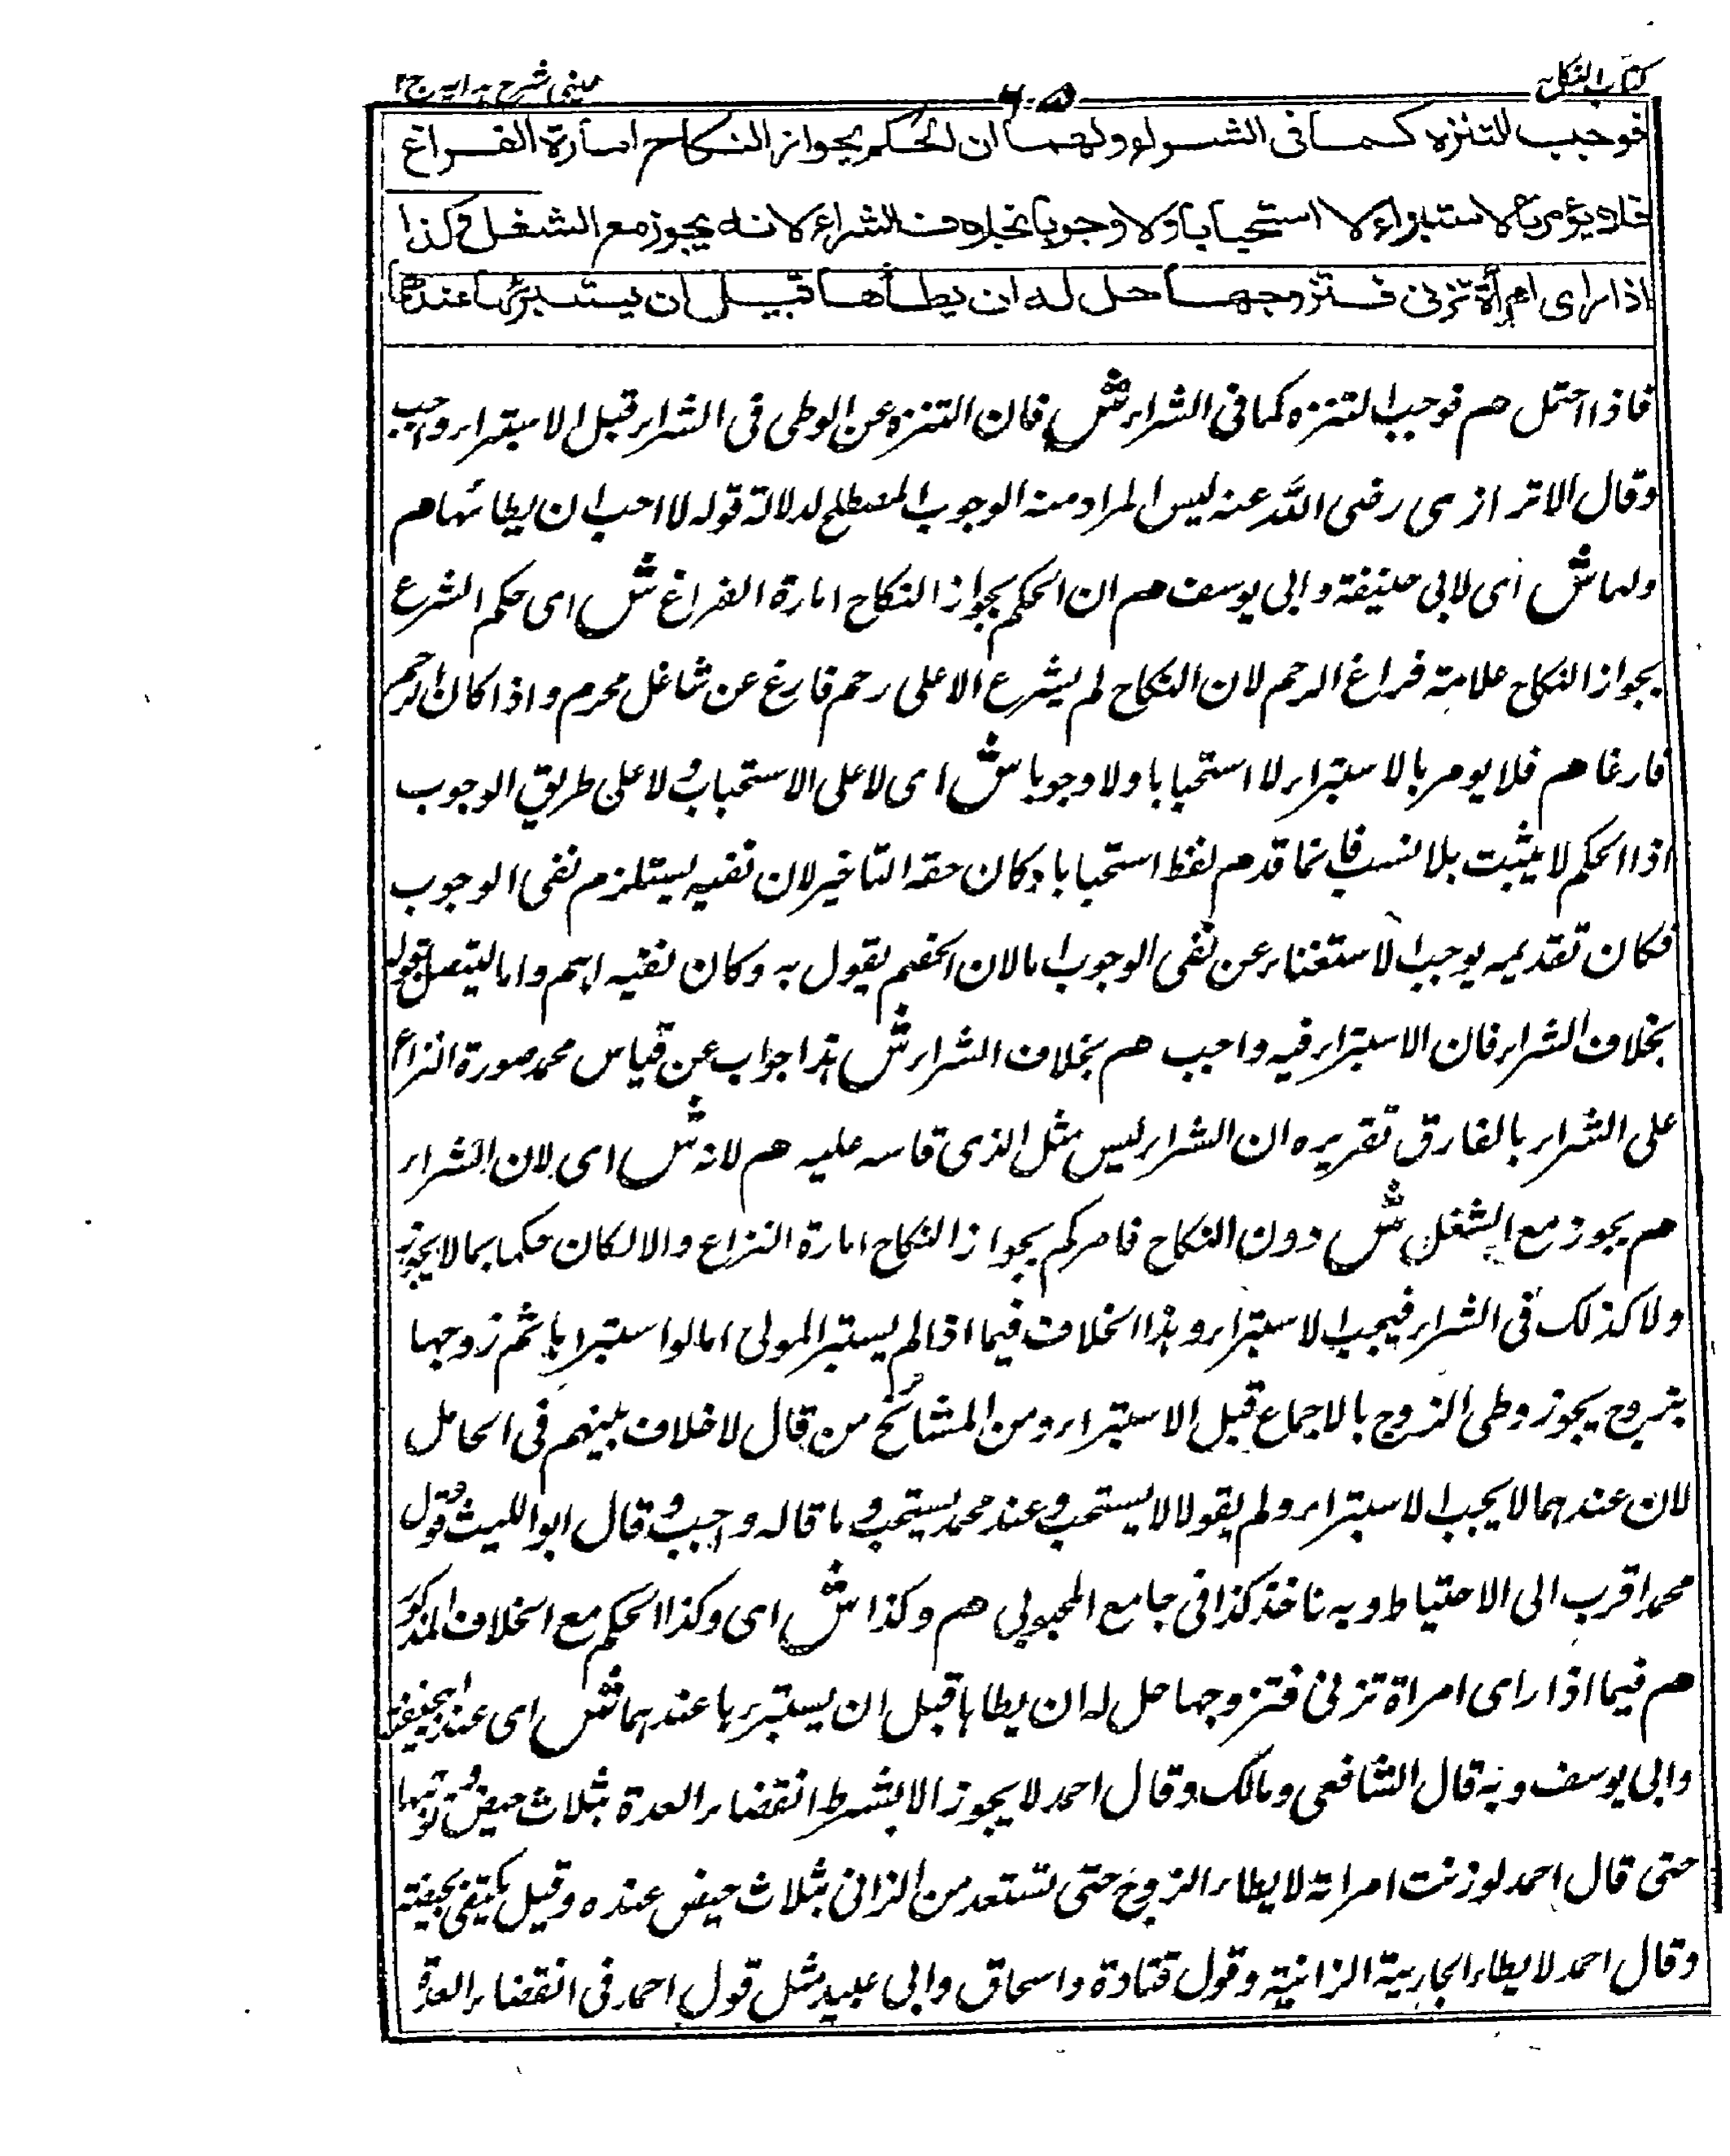 كتاب النكاح
٦٠٥
عيني شرح هدايه ج٢
فوجب التنزه كما فى الشراء ولهما ان الحكم بجواز النكاح امارة الفراغ
فلا يؤمر بالاستبراء لا استحبابا ولا وجوبا بخلاف الشراء لانه يجوز مع الشغل وكذا
اذا راى امرأة تزنى فتزوجها حل له ان يطأها قبل ان يستبرئها عندهما
فاذا احتمل هم فوجب التنزه كما فى الشراء ش فان التنزه عن الوطى فى الشراء قبل الاستبراء واجب
وقال الاترازى رضى الله عنه ليس المراد منه الوجوب المصطلح لدلالة قوله لا احب ان يطائها هم
ولهما ش اى لابى حنيفة وابى يوسف هم ان الحكم بجواز النكاح امارة الفراغ ش اى حكم الشرع
بجواز النكاح علامة فراغ الرحم لان النكاح لم يشرع الا على رحم فارغ عن شاغل محرم واذا كان الرحم
فارغا هم فلا يومر بالاستبراء لا استحبابا ولا وجوبا ش اى لا على الاستحباب ولا على طريق الوجوب
اذا الحكم لا يثبت بلا سبب فانما قدم لفظ استحبابا وكان حقه التاخير لان نفيه يستلزم نفى الوجوب
فكان تقديمه يوجب الاستغناء عن نفى الوجوب اما لان الخصم يقول به وكان نفيه اهم واما ليتصل بقوله
بخلاف الشراء فان الاستبراء فيه واجب هم بخلاف الشراء ش هذا جواب عن قياس محمد صورة النزاع
على الشراء بالفارق تقريره ان الشراء ليس مثل الذى قاسه عليه هم لانه ش اى لان الشراء
هم يجوز مع الشغل ش دون النكاح بجواز النكاح امارة النزاع والا لكان حكما بما لا يجوز
ولا كذلك فى الشراء فيجب الاستبراء وهذا الخلاف فيما اذا لم يستبر المولى اما لو استبراها ثم زوجها
يجوز وطى الزوج بالاجماع قبل الاستبراء ومن المشائخ من قال لا خلاف بينهم فى الحاصل
لان عندهما لا يجب الاستبراء ولم يقولا لا يستحب وعند محمد يستحب وما قاله واجب وقال ابو الليث قول
محمد اقرب الى الاحتياط وبه ناخذ كذا فى جامع المحبوبى هم وكذا ش اى وكذا الحكم مع الخلاف المذكور
هم فيما اذا راى امراة تزنى فتزوجها حل له ان يطاها قبل ان يستبرءها عندهما ش اى عند ابى حنيفة
وابى يوسف وبه قال الشافعى ومالك وقال احمد لا يجوز الا بشرط انقضاء العدة بثلاث حيض وتوبتها
حتى قال احمد لو زنت امراته لا يطاء الزوج حتى تستعد من الزانى بثلاث حيض عنده وقيل يكتفى بحيضة
وقال احمد لا يطاء الجارية الزانية وقول قتادة واسحاق وابى عبيد مثل قول احمد فى انقضاء العدة